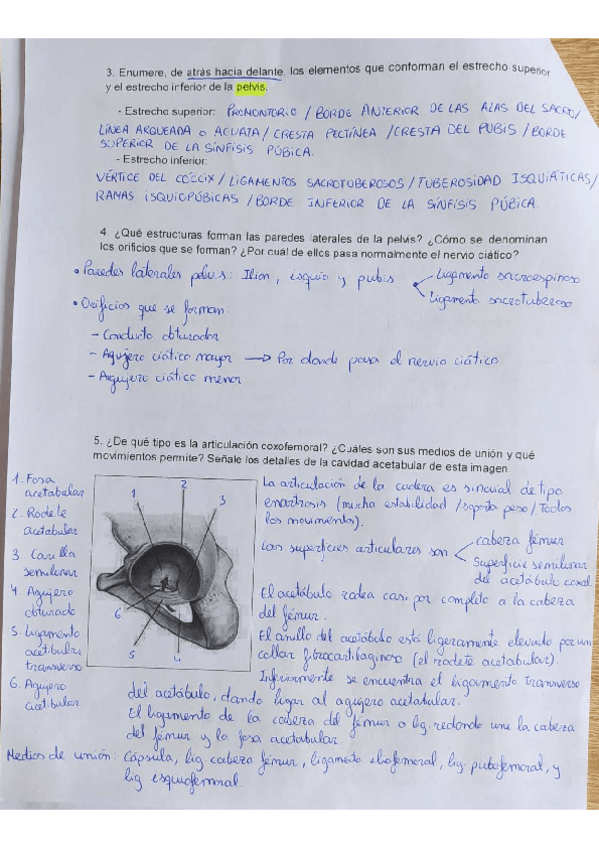 3. Enumere, de atrás hacia delante, los elementos que conforman el estrecho superior
y el estrecho inferior de la pelvis.
- Estrecho superior: PROMONTORIO / BORDE ANTERIOR DE LAS ALAS DEL SACRO /
LÍNEA ARQUEADA O ACUATA / CRESTA PECTÍNEA / CRESTA DEL PUBIS / BORDE
SUPERIOR DE LA SÍNFISIS PÚBICA.
- Estrecho inferior:
VÉRTICE DEL CÓCCIX / LIGAMENTOS SACROTUBEROSOS / TUBEROSIDAD ISQUIÁTICAS /
RAMAS ISQUIOPÚBICAS / BORDE INFERIOR DE LA SÍNFISIS PÚBICA.
4. ¿Qué estructuras forman las paredes laterales de la pelvis? ¿Cómo se denominan
los orificios que se forman? ¿Por cuál de ellos pasa normalmente el nervio ciático?
• Paredes laterales pelvis: Ilion, isquio y pubis
Ligamento sacroespinoso
Ligamento sacrotuberoso
• Orificios que se forman
- Conducto obturador
- Agujero ciático mayor → Por donde pasa el nervio ciático
- Agujero ciático menor
5. ¿De qué tipo es la articulación coxofemoral? ¿Cuáles son sus medios de unión y qué
movimientos permite? Señale los detalles de la cavidad acetabular de esta imagen
1. Fosa
acetabular
2. Rodete
acetabular
3. Carilla
semilunar
4. Agujero
obturado
5. Ligamento
acetibular
transverso
6. Agujero
acetibular
1
2
3
6
5
4
La articulación de la cadera es sinovial de tipo
enartrosis (mucha estabilidad / soporta peso / Todos
los movimientos).
Las superficies articulares son
cabeza fémur
Superficie semilunar
del acetábulo coxal
El acetábulo rodea casi por completo a la cabeza
del fémur.
El anillo del acetábulo está ligeramente elevado por un
collar fibrocartilaginoso (el rodete acetabular).
Inferiormente se encuentra el ligamento transverso
del acetábulo, dando lugar al agujero acetabular.
El ligamento de la cabeza del fémur o lig. redondo une la cabeza
del fémur y la fosa acetabular.
Medios de unión: Cápsula, lig. cabeza fémur, ligamento iliofemoral, lig. pubofemoral, y
lig isquiofemoral.